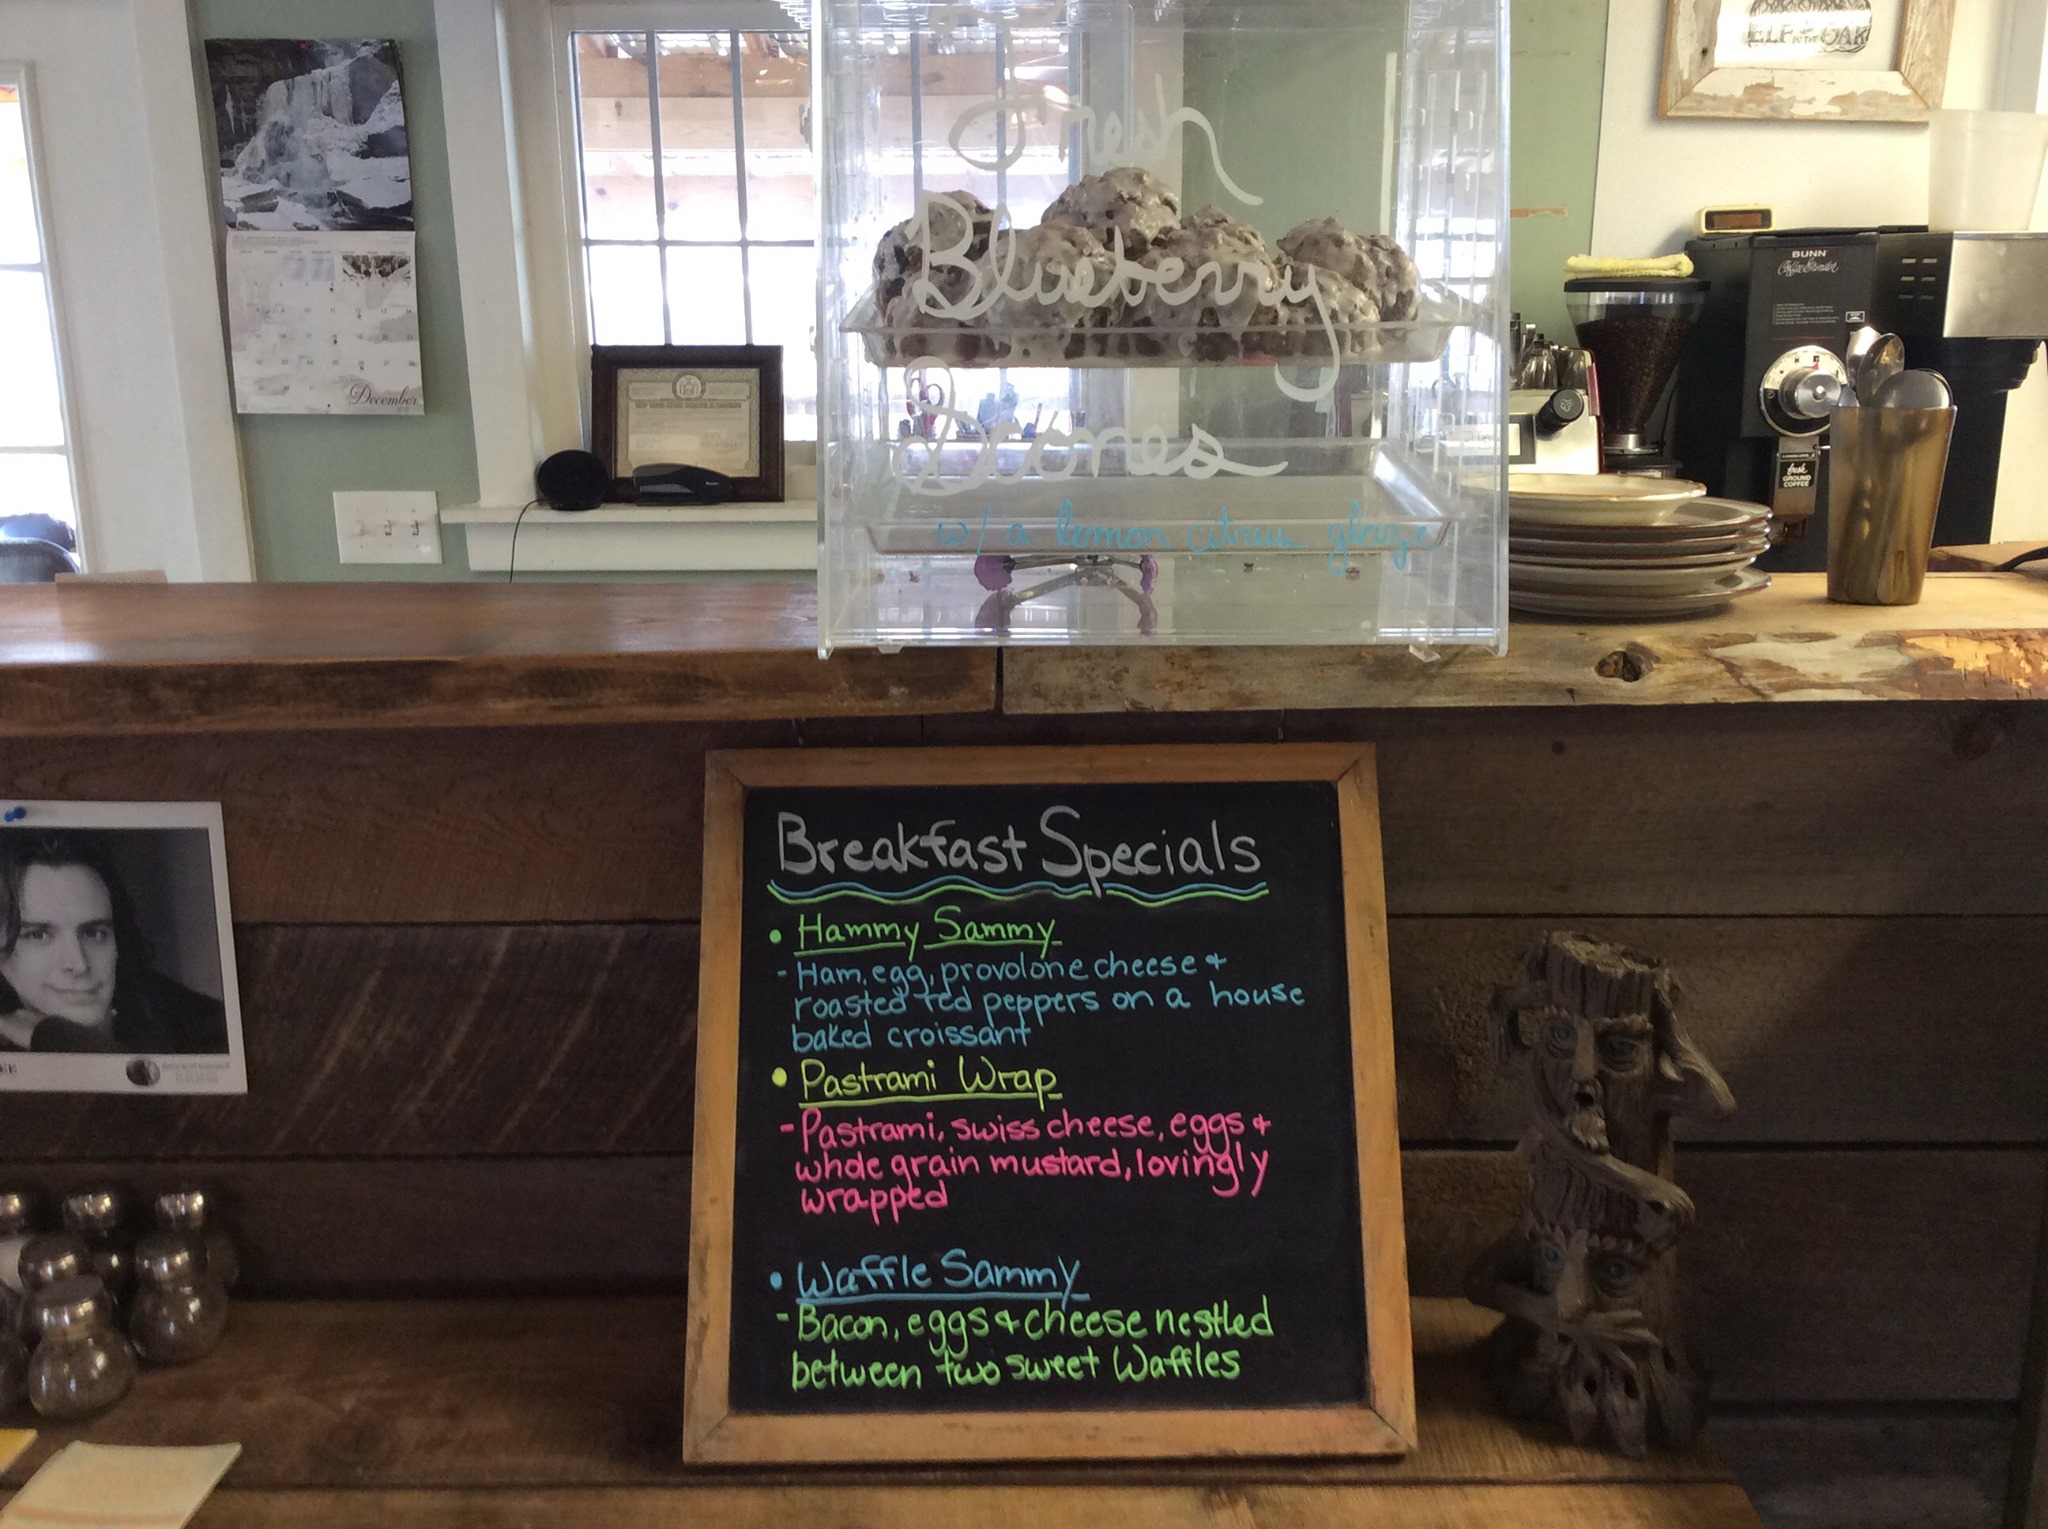 ELF in the OAK
Fresh
Blueberry
Scones
w/ a lemon citrus glaze
BUNN
Coffee Grinder
fresh
GROUND
COFFEE
December
Breakfast Specials
• Hammy Sammy
- Ham, egg, provolone cheese +
roasted red peppers on a house
baked croissant
• Pastrami Wrap
- Pastrami, swiss cheese, eggs +
whole grain mustard, lovingly
wrapped
• Waffle Sammy
- Bacon, eggs + cheese nestled
between two sweet Waffles